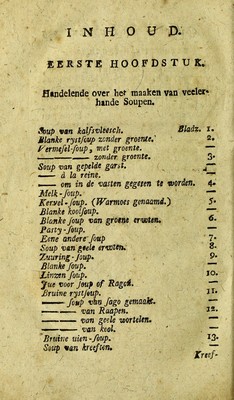 INHOUD.
EERSTE HOOFDSTUK.
Handelende over het maaken van veeler-
hande Soupen.
Soup van kalfsvleesch. Bladz. 1.
Blanke rystsoup zonder groente. 2.
Vermesel-soup, met groente.
——— zonder groente. 3.
Soup van gepelde garst.
—— à la reine.
—— om in de vasten gegeten te worden. 4.
Melk-soup.
Kervel-soup. (Warmoes genaamd.) 5.
Blanke koolsoup.
Blanke soup van groene erwten. 6.
Pasty-soup.
Eene andere soup 7.
Soup van geele erwten. 8.
Zuuring-soup. 9.
Blanke soup.
Linzen soup. 10.
Jue voor soup of Ragoû.
Bruine rystsoup. 11.
—— soup van sago gemaakt.
—— van Raapen. 12.
—— van geele wortelen.
—— van kool.
Bruine uien-soup. 13.
Soup van kreeften.
Kreef-